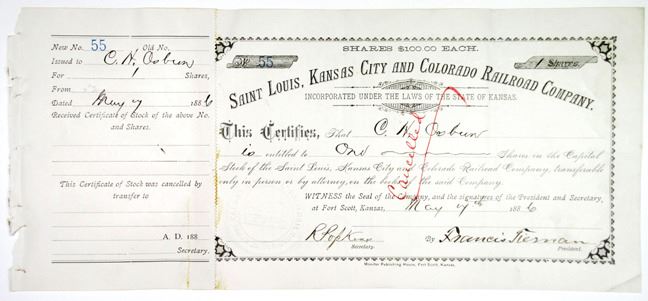 New No. 55 Old No.
Issued to C. H. Osburn
For 1 Shares,
From
Dated May 7 1886
Received Certificate of Stock of the above No.
and Shares.
This Certificate of Stock was cancelled by
transfer to
A. D. 188
Secretary.
SHARES $100.00 EACH.
No 55
1 Shares.
SAINT LOUIS, KANSAS CITY AND COLORADO RAILROAD COMPANY.
INCORPORATED UNDER THE LAWS OF THE STATE OF KANSAS.
This Certifies, That C. H. Osburn
is entitled to One Shares in the Capital
Stock of the Saint Louis, Kansas City and Colorado Railroad Company, transferable
only in person or by attorney, on the books of the said Company.
Cancelled
WITNESS the Seal of the Company, and the signatures of the President and Secretary,
at Fort Scott, Kansas, May 7th 1886
By Francis Tiernan
Secretary.
President.
Monitor Publishing House, Fort Scott, Kansas.